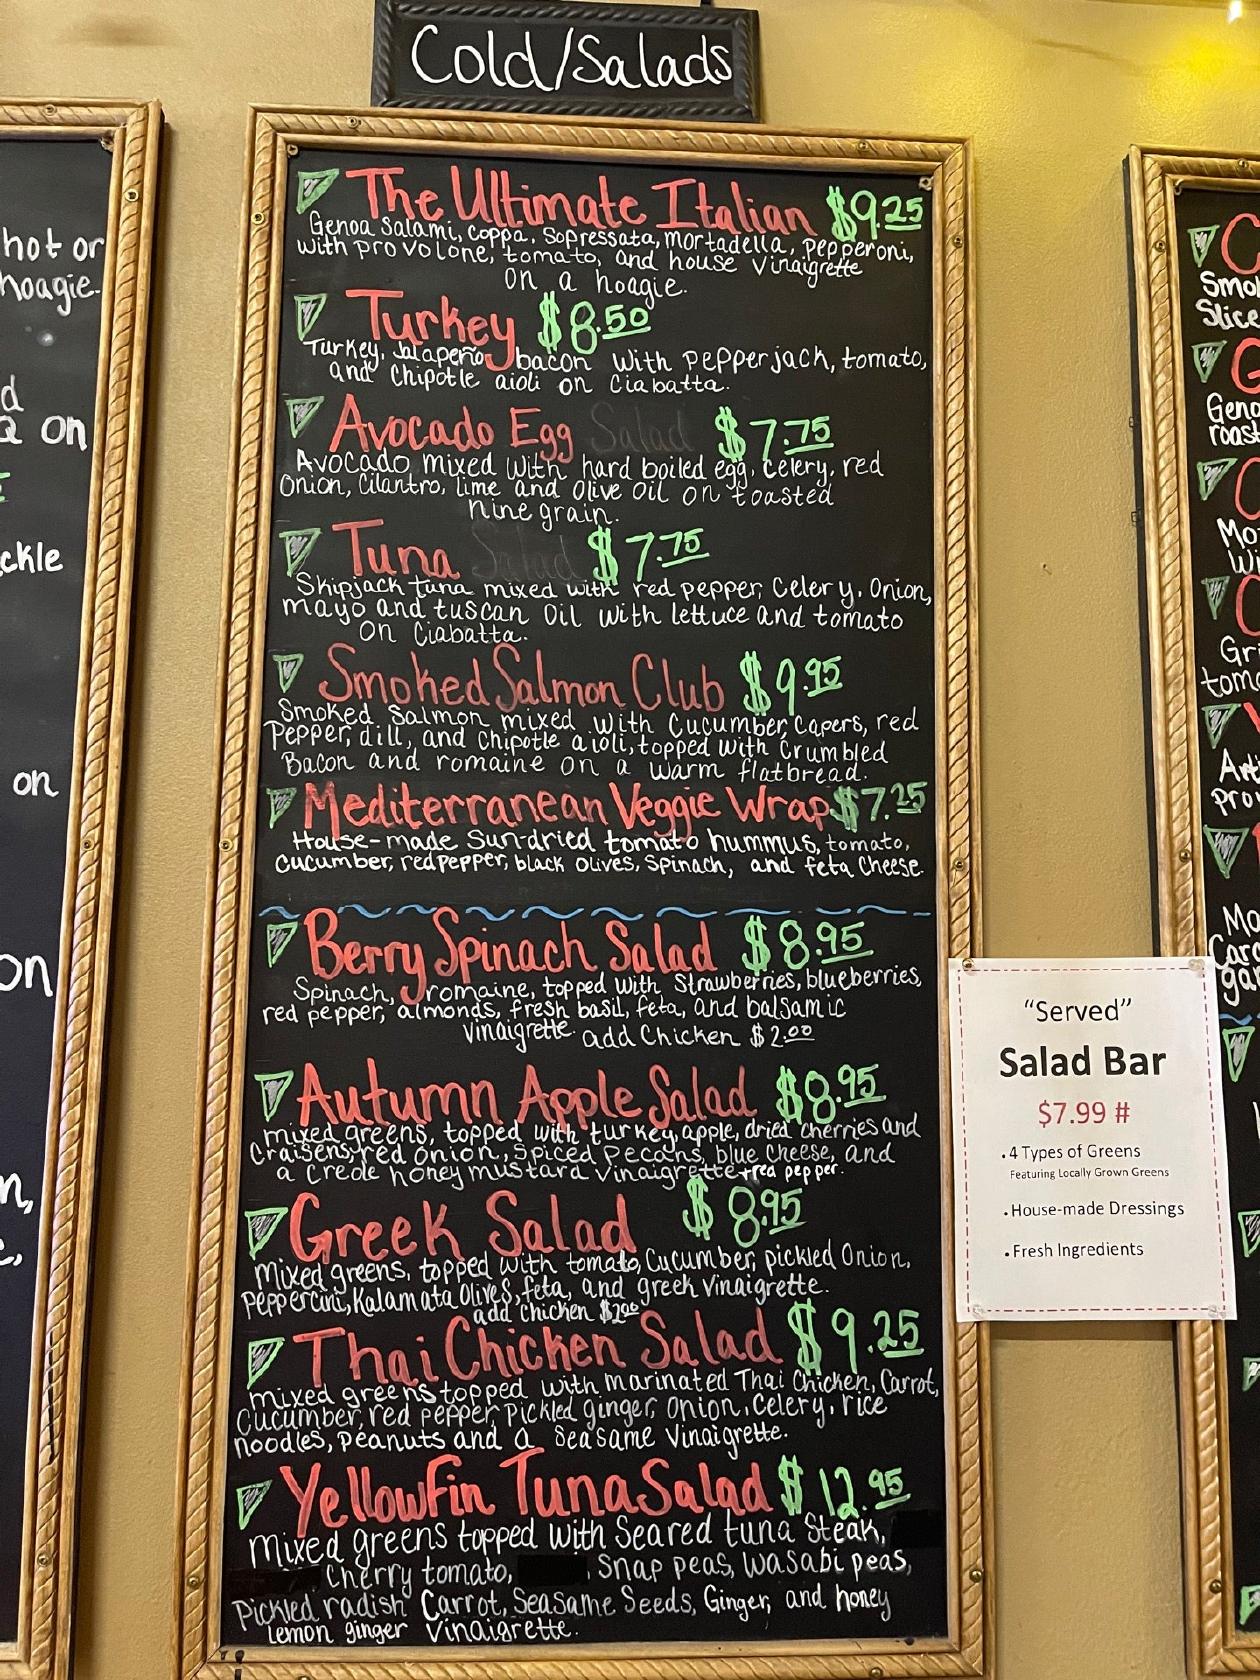 Cold/Salads
The Ultimate Italian $9.25
Genoa Salami, coppa, Sopressata, mortadella, pepperoni,
with provolone, tomato, and house Vinaigrette
on a hoagie.
Turkey $8.50
Turkey, Jalapeño bacon with Pepperjack, tomato,
and Chipotle aioli on Ciabatta.
Avocado Egg Salad $7.75
Avocado mixed with hard boiled egg, Celery, red
Onion, Cilantro, lime and Olive Oil on toasted
nine grain.
Tuna Salad $7.75
Skipjack tuna mixed with red pepper, Celery, Onion,
mayo and tuscan Oil with lettuce and tomato
on Ciabatta.
Smoked Salmon Club $9.95
Smoked Salmon mixed with Cucumber, Capers, red
Pepper, dill, and Chipotle aioli, topped with Crumbled
Bacon and romaine on a warm flatbread.
Mediterranean Veggie Wrap $7.25
House-made Sun-dried tomato hummus, tomato,
Cucumber, red pepper, black Olives, Spinach, and feta Cheese.
Berry Spinach Salad $8.95
Spinach, romaine, topped with Strawberries, blueberries,
red pepper, almonds, fresh basil, feta, and balsamic
Vinaigrette. add Chicken $2.00
Autumn Apple Salad $8.95
mixed greens, topped with turkey, apple, dried cherries and
Craisens, red Onion, Spiced Pecans, blue Cheese, and
a Creole honey mustard Vinaigrette + red pepper.
Greek Salad $8.95
Mixed greens, topped with tomato, Cucumber, pickled Onion,
Peppercini, Kalamata Olives, feta, and greek Vinaigrette.
add chicken $2.00
Thai Chicken Salad $9.25
mixed greens topped with marinated Thai Chicken, Carrot,
Cucumber, red pepper, Pickled ginger, Onion, Celery, rice
noodles, Peanuts and a Seasame Vinaigrette.
Yellowfin Tuna Salad $12.95
Mixed greens topped with Seared tuna Steak,
Cherry tomato, Snap peas, Wasabi peas,
Pickled radish Carrot, Seasame Seeds, Ginger, and honey
Lemon ginger Vinaigrette.
"Served"
Salad Bar
$7.99 #
. 4 Types of Greens
Featuring Locally Grown Greens
. House-made Dressings
. Fresh Ingredients
hot or
hoagie.
on
on